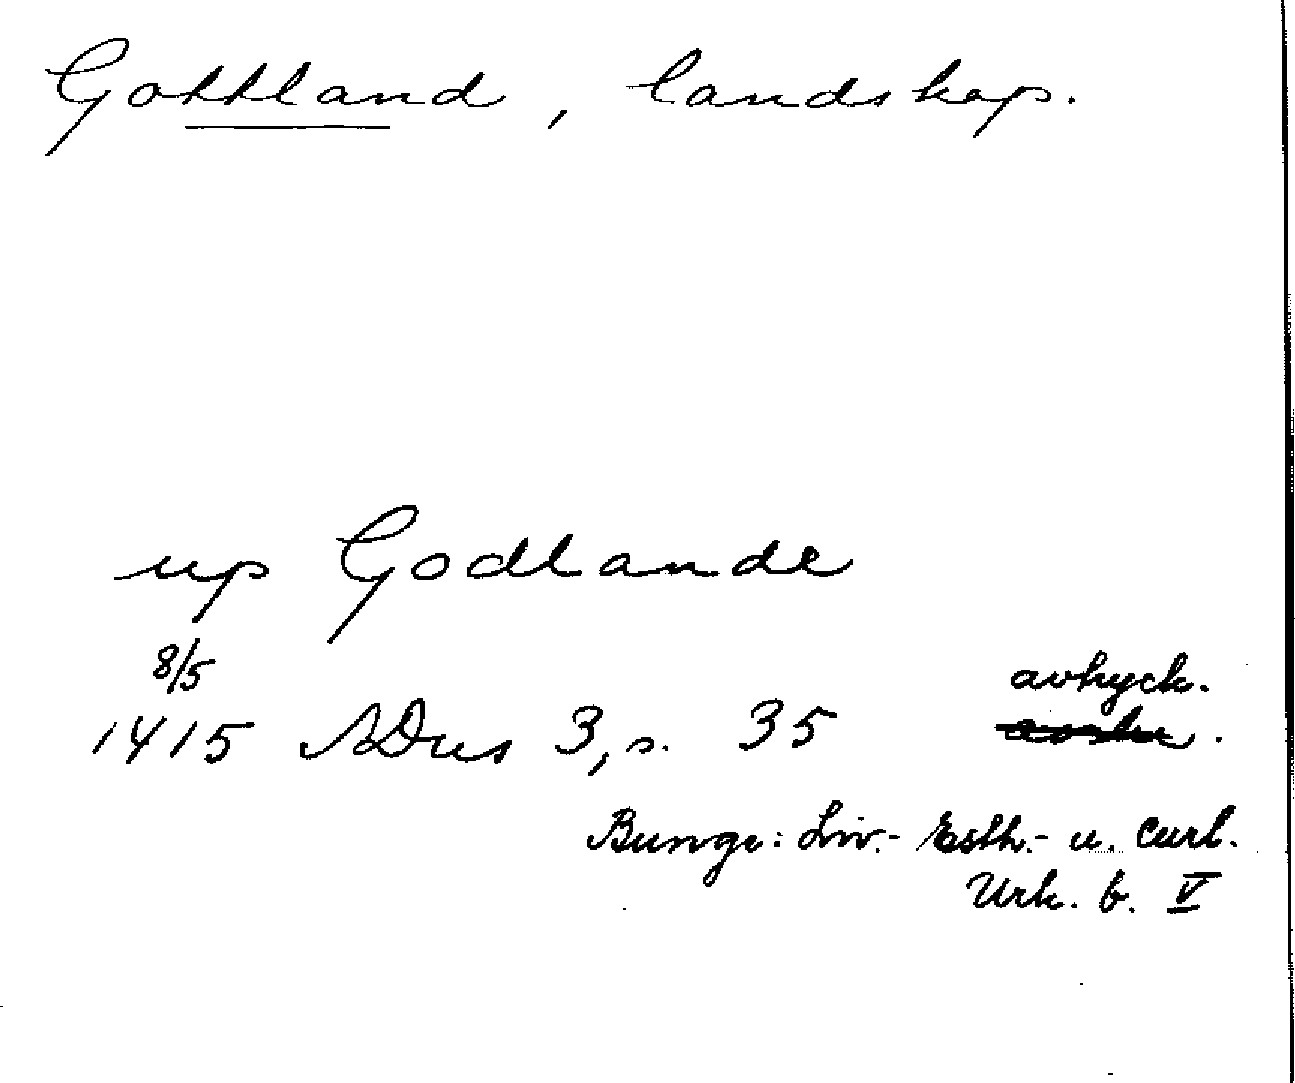 Gottland, landskap.
up Godlande
8/5
1415 SDns 3, s. 35 avtryck.
Bunge: Liv.- Esth.- u. Curl.
Urk. b. V